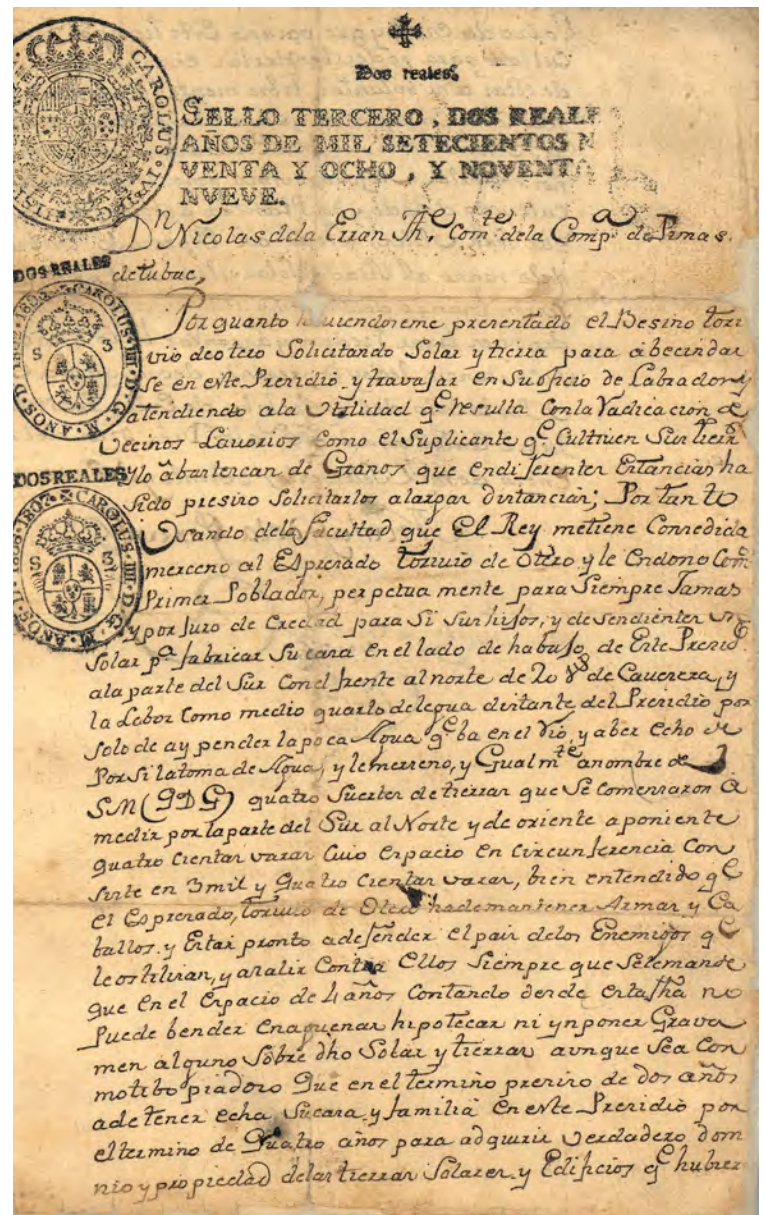 Dos reales.
SELLO TERCERO, DOS REALE
AÑOS DE MIL SETECIENTOS N
VENTA Y OCHO, Y NOVENTA
NVEVE.
Dn Nicolas dela Erran The. Comte dela Compa de Pimas
detubac,
DOS REALES
CAROLUS IV D G
Por quanto haviendoseme presentado el Besino tori
vio deotero Solicitando Solar y tierra para abecindar
se en este Presidio y travajar en Suoficio de Labrador y
atendiendo ala Utilidad qe resulta Conla Radicacion de
Vecinos Lavorios Como el Suplicante qe Cultiven Sus tierr
DOS REALES
ylo abastescan de Granos que endiferentes Estancias ha
Sido presiso Solicitarlos alargas distancias; Por tanto
Usando dela facultad que El Rey metiene Consedida
merceno al Espresado Torivio de Otero y le Endono Com
Primer Poblador, perpetua mente para Siempre Jamas
y por Juro de Eredad para Si Sus hijos, y desendientes un
Solar pa fabricar Sucasa En el lado de habajo de Este Presido
ala parte del Sur Con el frente al norte de 20 vs de Cavesera, y
la Labor Como medio quarto delegua distante del Presidio por
solo de ay pender lapoca Agua qe ba en el Rio, y aber Echo de
Por Si latoma de Agua, y lemerseno, y Gualmte anombre de
SM (QDG) quatro Suertes de tierras que Se Comensaron a
medir por la parte del Sur al Norte y de oriente a poniente
quatro Cientas varas Cuio Espacio En Circunferencia Con
siste en 3mil y Quatro Cientas varas, bien entendido qe
el Espresado, Torivio de Otero hademantener Armas y Ca
ballos y Estar pronto adefender el pais delos Enemigos qe
leostilisan, y asalir Contra Ellos Siempre que Selemande
que En el Espacio de 4 años Contando desde esta fha no
Puede bender Enaguenar hipotecar ni ynponer Grava
men alguno Sobre dho Solar y tierras aunque Sea Con
motibo piadoso Que en el termino presiso de dos años
adetener echa Sucasa y familia En este Presidio por
el termino de Quatro años para adquirir verdadero dom
nio y propiedad delas tierras Solares y Edificios qe hubier